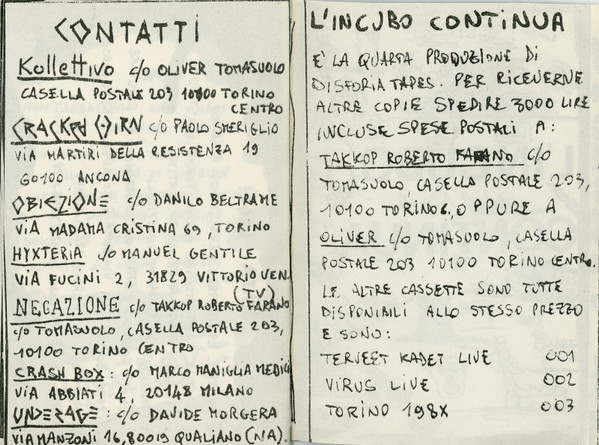 CONTATTI
Kollettivo c/o OLIVER TOMASUOLO
CASELLA POSTALE 203 10100 TORINO
CENTRO
CRACKED HIRN c/o PAOLO SMERIGLIO
VIA MARTIRI DELLA RESISTENZA 19
60100 ANCONA
OBIEZIONE c/o DANILO BELTRAME
VIA MADAMA CRISTINA 69, TORINO
HYXTERIA c/o MANUEL GENTILE
VIA FUCINI 2, 31829 VITTORIO VEN.
(TV)
NEGAZIONE c/o TAKKOP ROBERTO FARANO
c/o TOMASUOLO, CASELLA POSTALE 203,
10100 TORINO CENTRO
CRASH BOX : c/o MARCO MANIGLIA MEDICI
VIA ABBIATI 4, 20148 MILANO
UNDERAGE : c/o DAVIDE MORGERA
VIA MANZONI 16, 80019 QUALIANO (NA).
L'INCUBO CONTINUA
E' LA QUARTA PRODUZIONE DI
DISFORIA TAPES. PER RICEVERNE
ALTRE COPIE SPEDIRE 3000 LIRE
INCLUSE SPESE POSTALI A :
TAKKOP ROBERTO FARANO c/o
TOMASUOLO, CASELLA POSTALE 203,
10100 TORINO C., OPPURE A
OLIVER c/o TOMASUOLO, CASELLA
POSTALE 203 10100 TORINO CENTRO.
LE ALTRE CASSETTE SONO TUTTE
DISPONIBILI ALLO STESSO PREZZO
E SONO :
TERVEET KADET LIVE 001
VIRUS LIVE 002
TORINO 198X 003